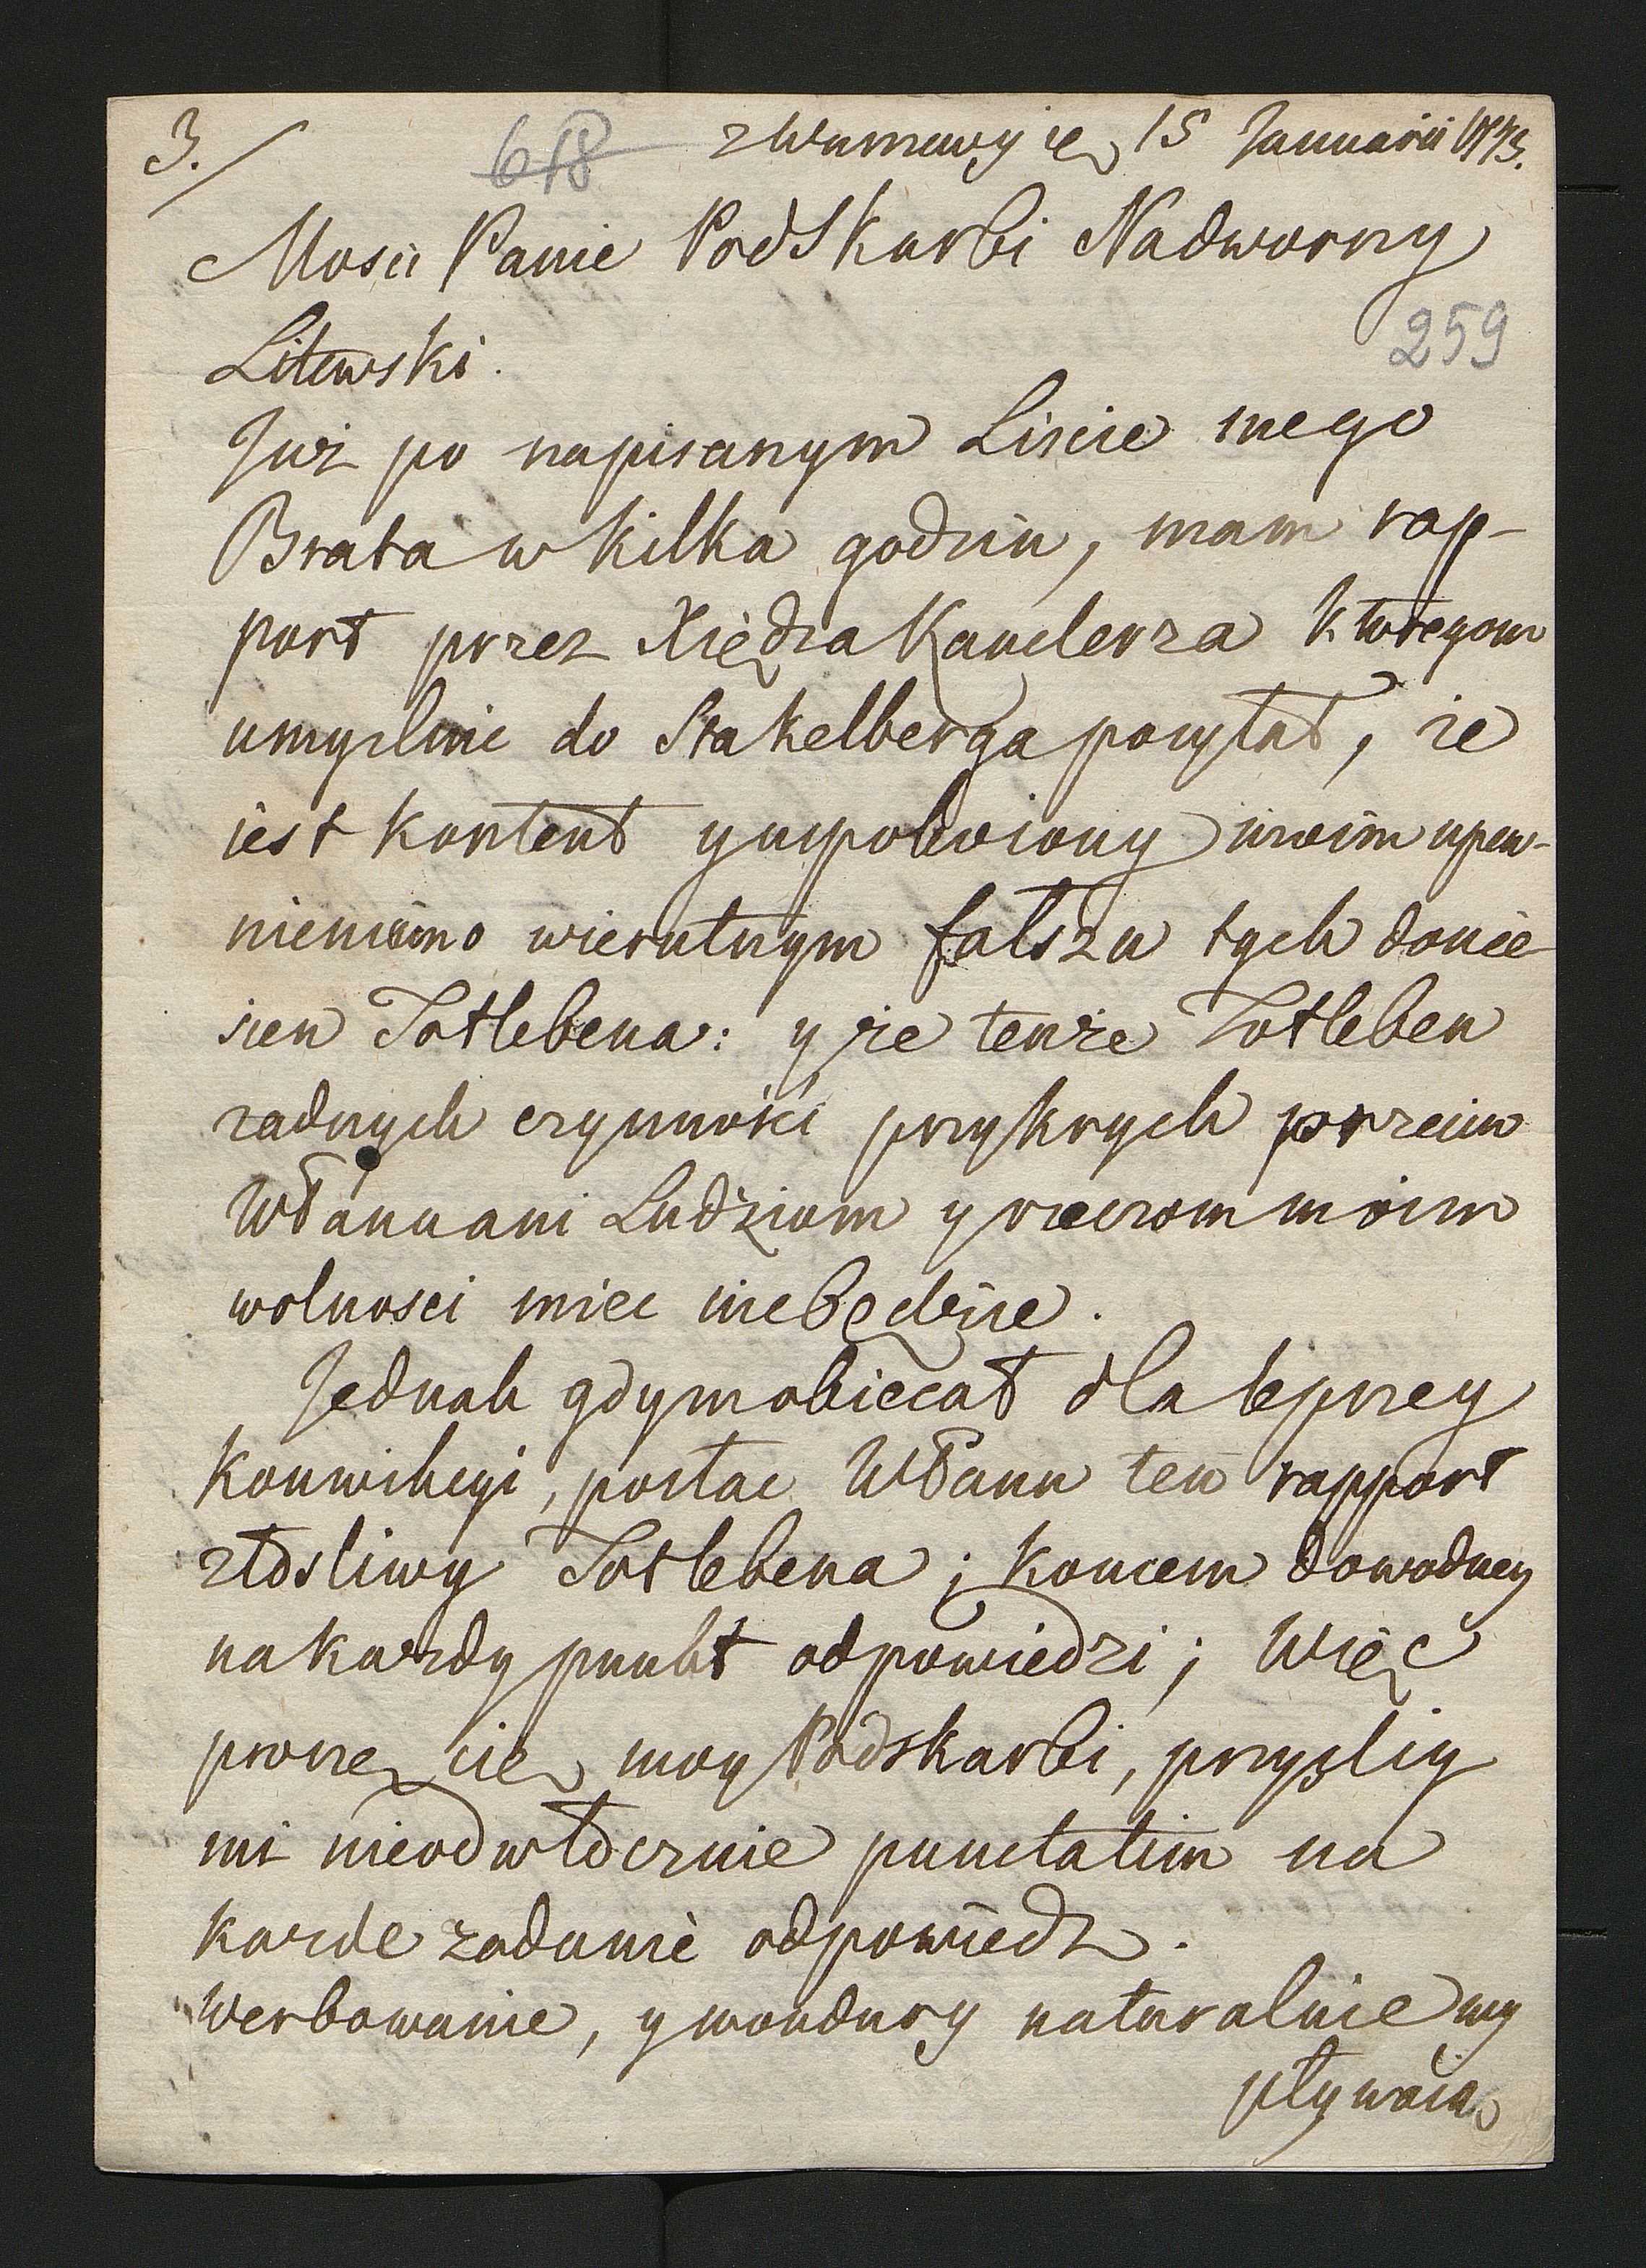 3./ 618 z Warszawy ie 15 Januarii 1773.
Mosci Panie PodSkarbi Nadworny
259
Litewski.
Juz po napisanym Liscie mego
Brata w kilka godzin, mam rap-
port przez Xiędza Kanclerza któregom
umyslnie do Stakelberga posyłał, ze
iest kontent y uspokoiony moim upew-
nieniem o wierutnym fałszu tych donie-
sien Totlebena: y ze tenze Totleben
zadnych czynnosci przykrych przeciw
WPanu ani Ludziom y rzeczom moim
wolnosci miec niebędzie.
Jednak gdym obiecał dla lepszey
konwikcyi, posłac WPanu ten rapport
złosliwy Totlebena; koncem dowodney
na kazdy punkt odpowiedzi; Więc
proszę cię moy Podskarbi, przyslij
mi nieodwłocznie punctatim na
kazde zadanie odpowiedz.
Werbowanie, y mondury naturalnie wy
pływaią